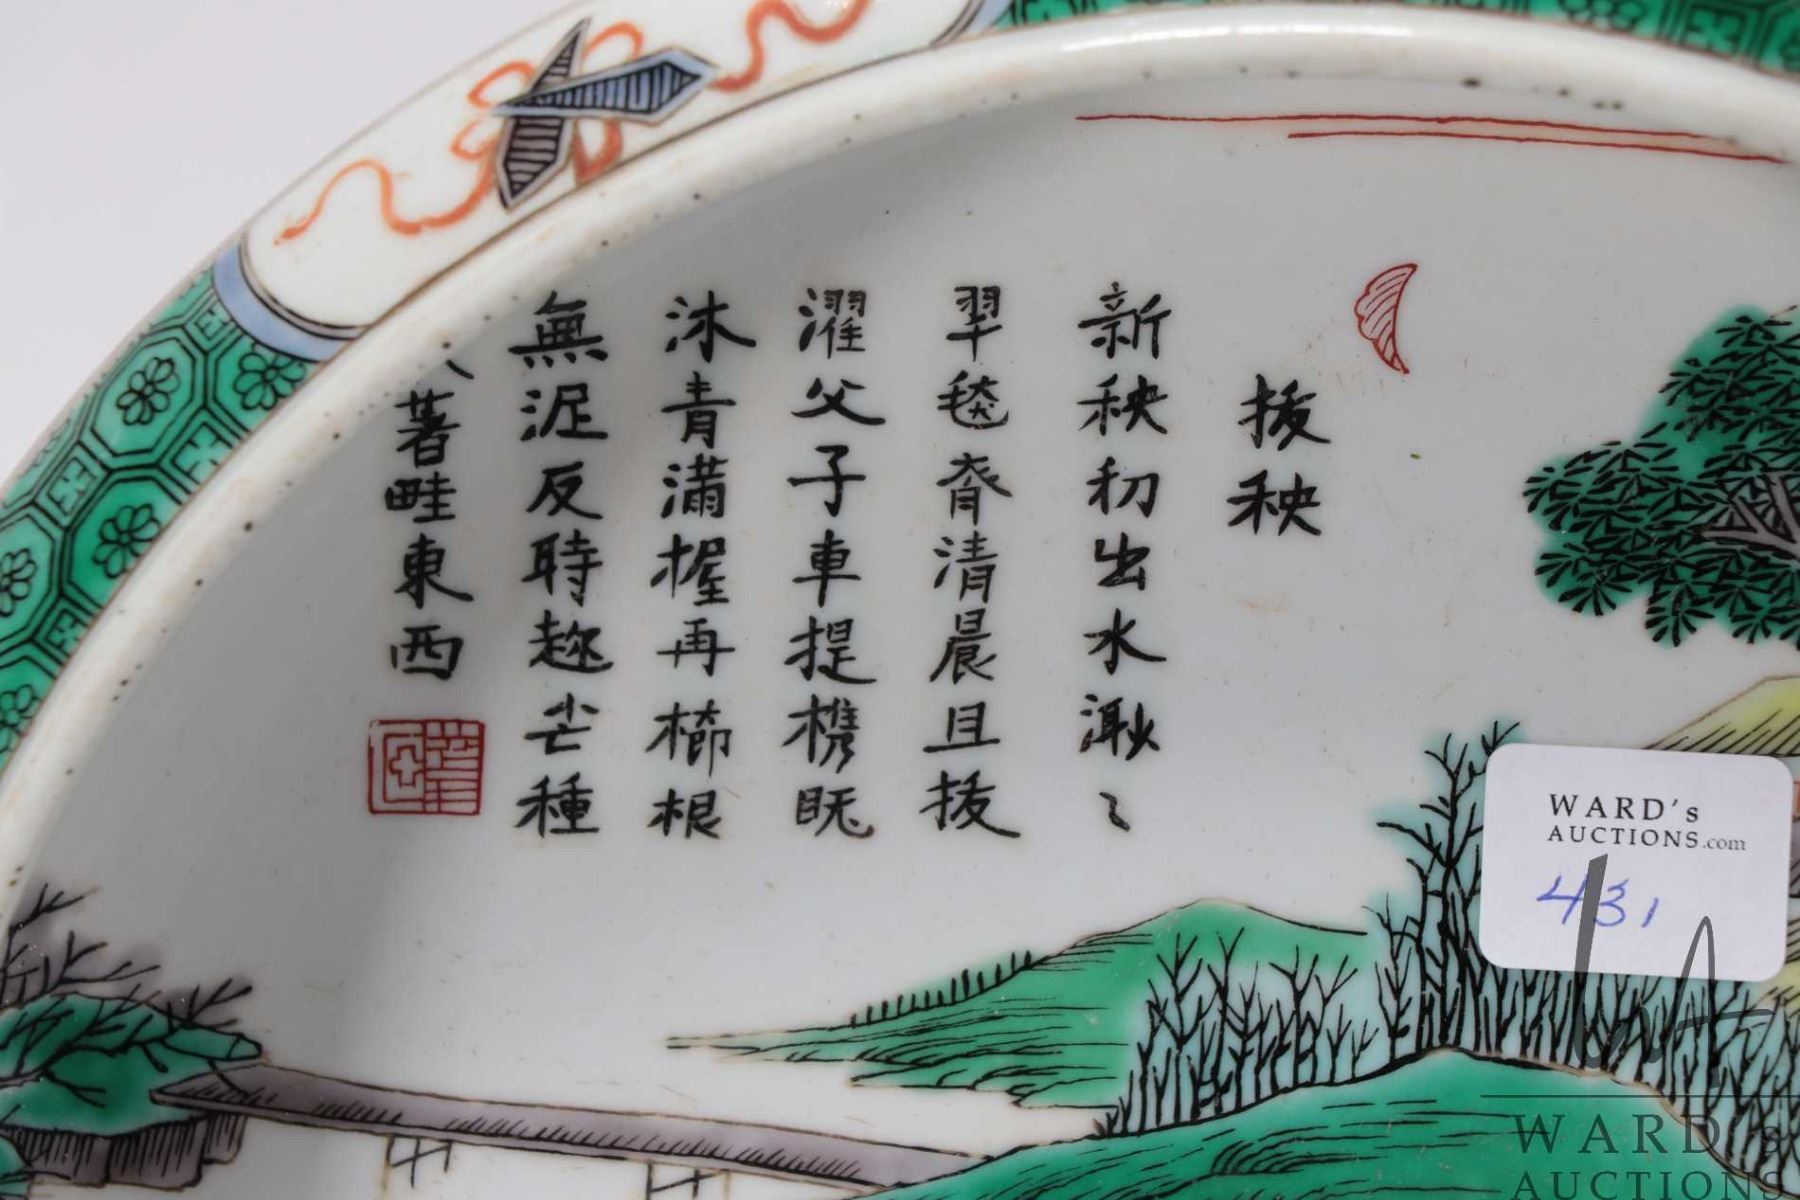 拔秧
新秧初出水渺〻
翠毯齊清晨且拔
濯父子車提携既
沐青滿握再櫛根
無泥反時趂芒種
著畦東西
WARD's
AUCTIONS.com
431
WARD's
AUCTIONS